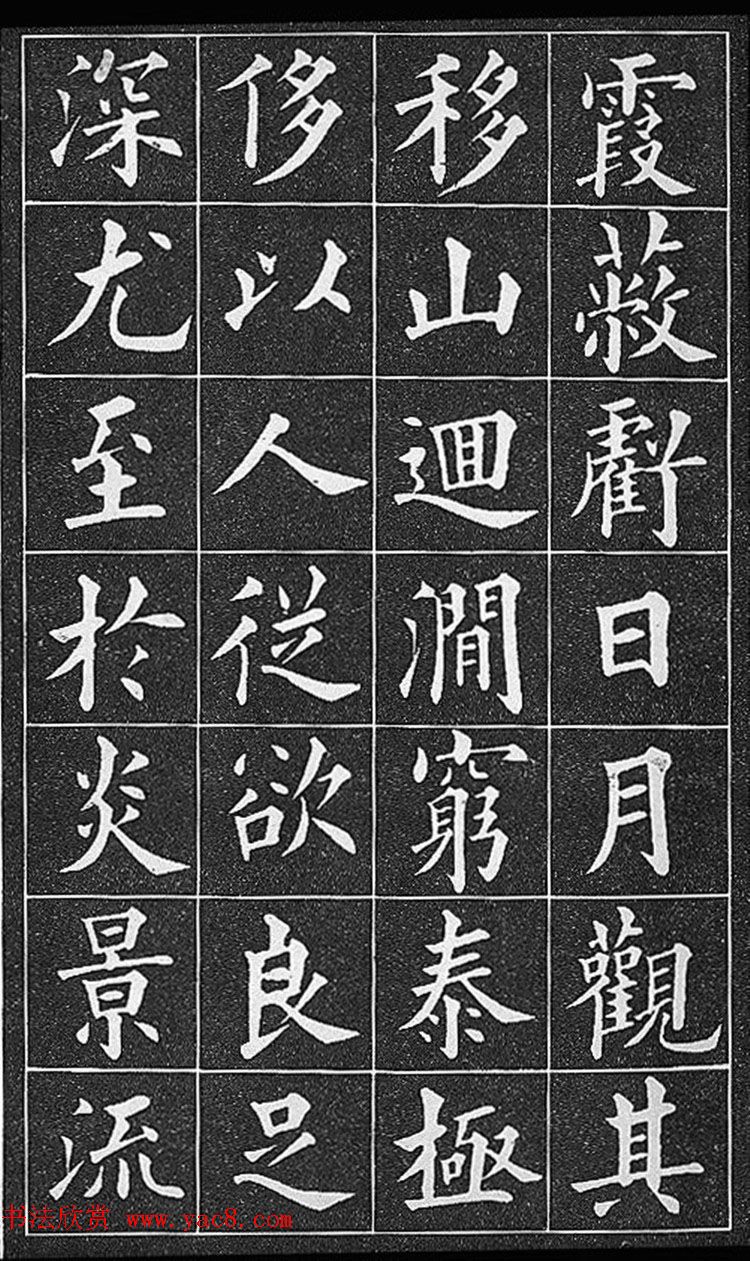 霞蔽虧日月觀其
移山迴澗窮泰極
侈以人從欲良足
深尤至於炎景流
书法欣赏 www.yac8.com